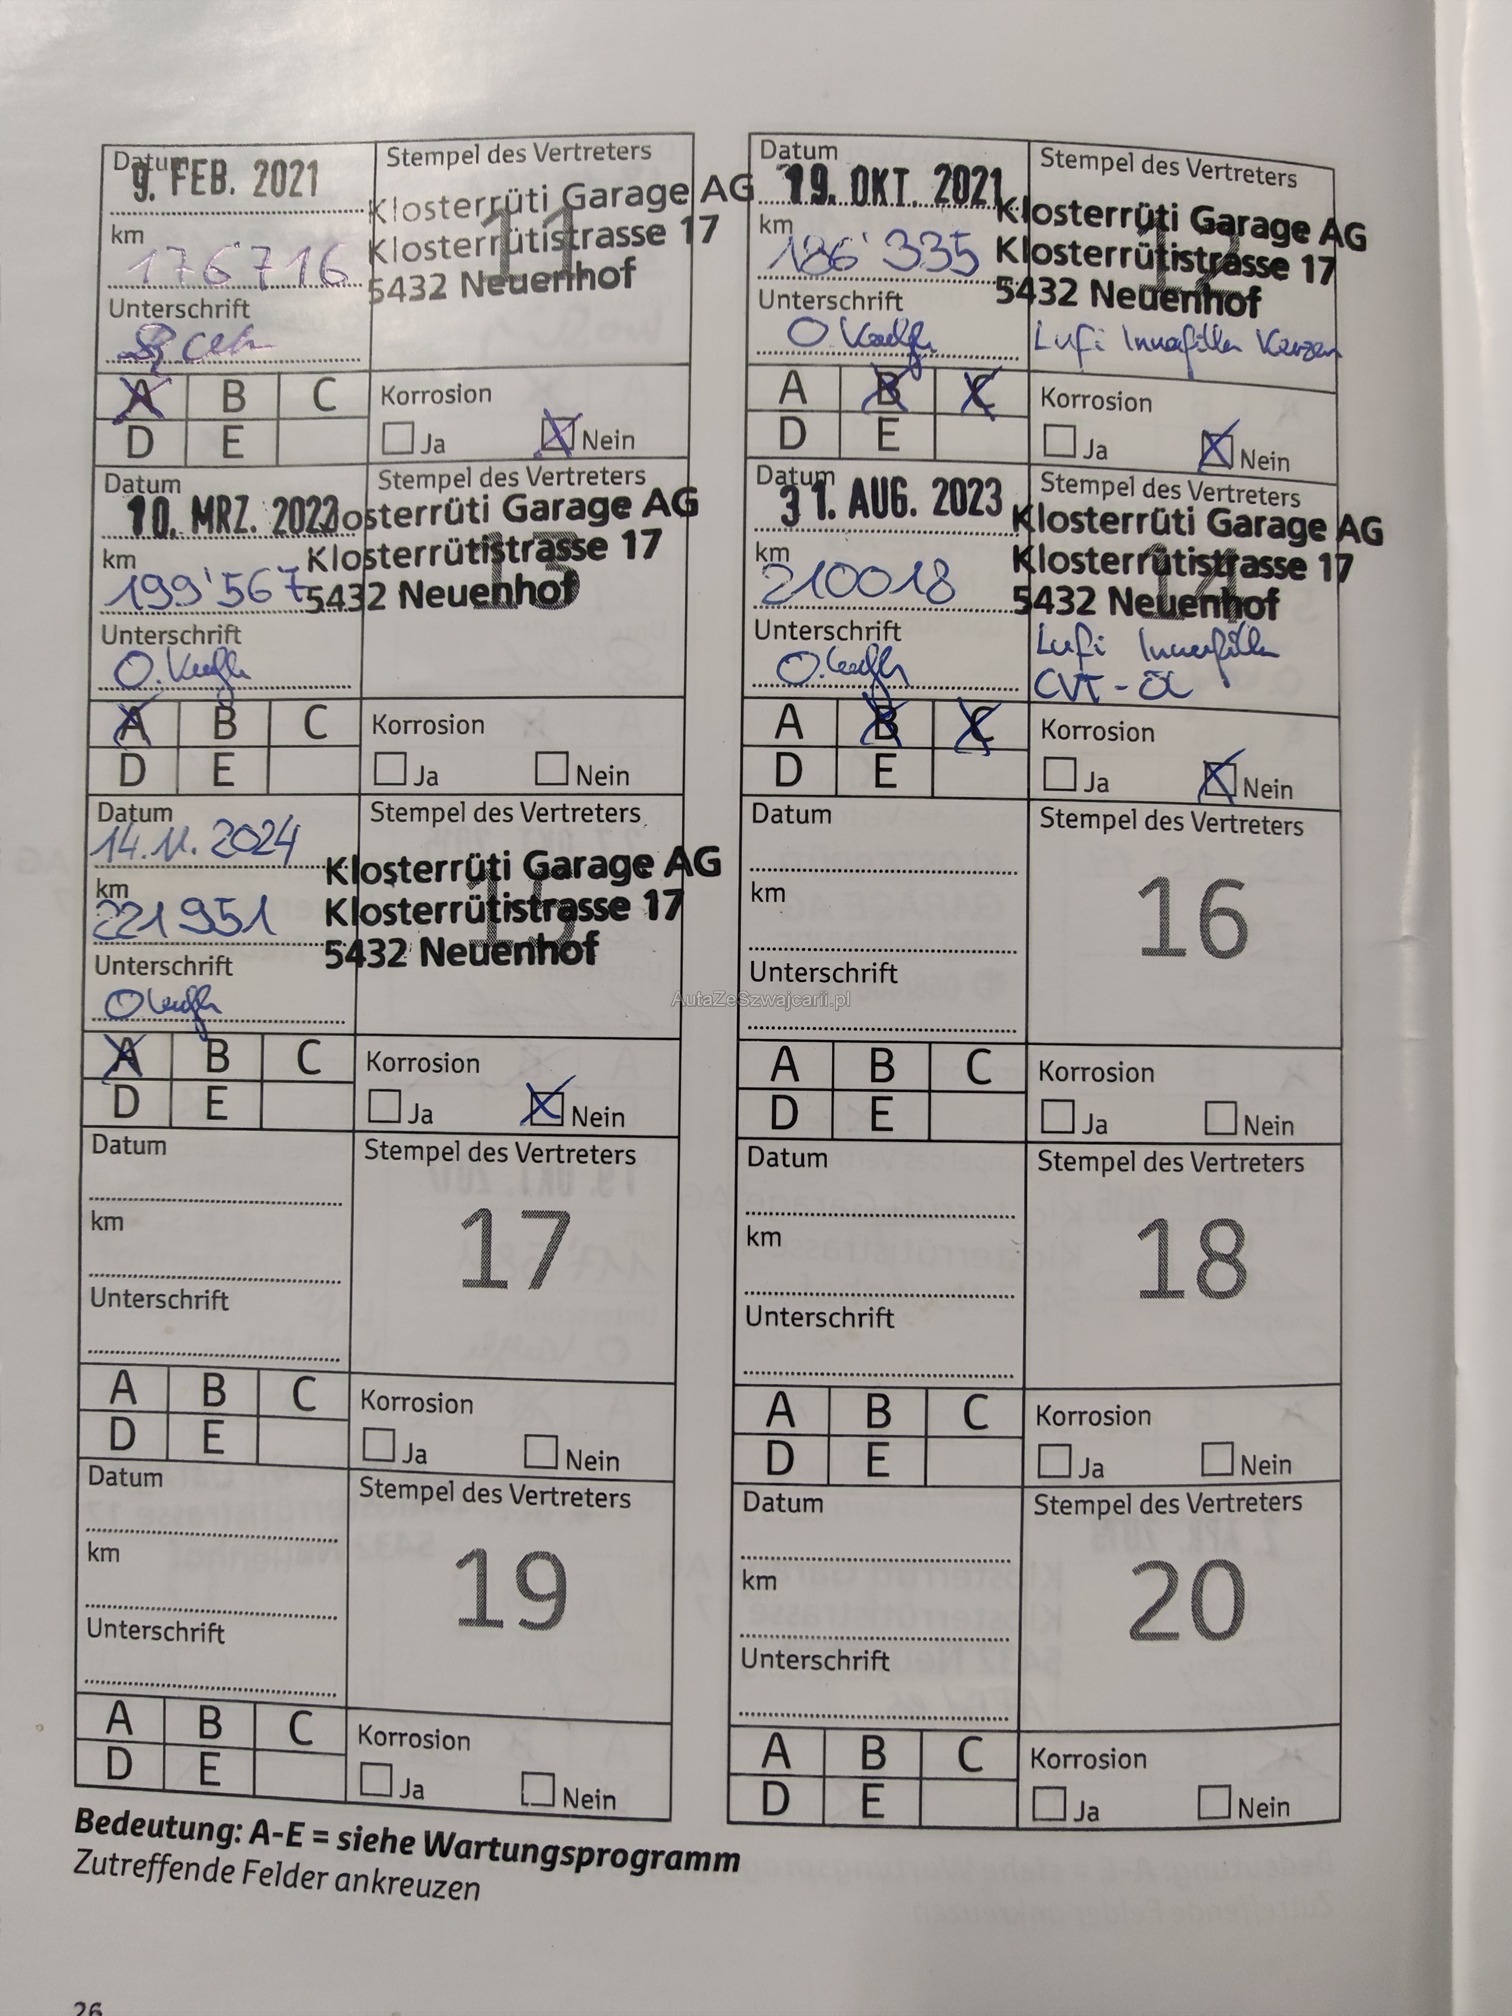 Datum
9. FEB. 2021
Stempel des Vertreters
11
Klosterrüti Garage AG
Klosterrütistrasse 17
5432 Neuenhof
km
176'716
Unterschrift
A B C
D E
Korrosion
Ja Nein
Datum
19. OKT. 2021
Stempel des Vertreters
12
Klosterrüti Garage AG
Klosterrütistrasse 17
5432 Neuenhof
km
186'335
Unterschrift
Lufi Innenfilter Kerzen
A B C
D E
Korrosion
Ja Nein
Datum
10. MRZ. 2022
Stempel des Vertreters
13
Klosterrüti Garage AG
Klosterrütistrasse 17
5432 Neuenhof
km
199'567
Unterschrift
A B C
D E
Korrosion
Ja Nein
Datum
31. AUG. 2023
Stempel des Vertreters
14
Klosterrüti Garage AG
Klosterrütistrasse 17
5432 Neuenhof
km
210018
Unterschrift
Lufi Innenfilter
CVT-ÖL
A B C
D E
Korrosion
Ja Nein
Datum
14.11.2024
Stempel des Vertreters
15
Klosterrüti Garage AG
Klosterrütistrasse 17
5432 Neuenhof
km
221951
Unterschrift
A B C
D E
Korrosion
Ja Nein
Datum
Stempel des Vertreters
km
16
Unterschrift
A B C
D E
Korrosion
Ja Nein
AutaZeSzwajcarii.pl
Datum
Stempel des Vertreters
km
17
Unterschrift
A B C
D E
Korrosion
Ja Nein
Datum
Stempel des Vertreters
km
18
Unterschrift
A B C
D E
Korrosion
Ja Nein
Datum
Stempel des Vertreters
km
19
Unterschrift
A B C
D E
Korrosion
Ja Nein
Datum
Stempel des Vertreters
km
20
Unterschrift
A B C
D E
Korrosion
Ja Nein
Bedeutung: A-E = siehe Wartungsprogramm
Zutreffende Felder ankreuzen
26